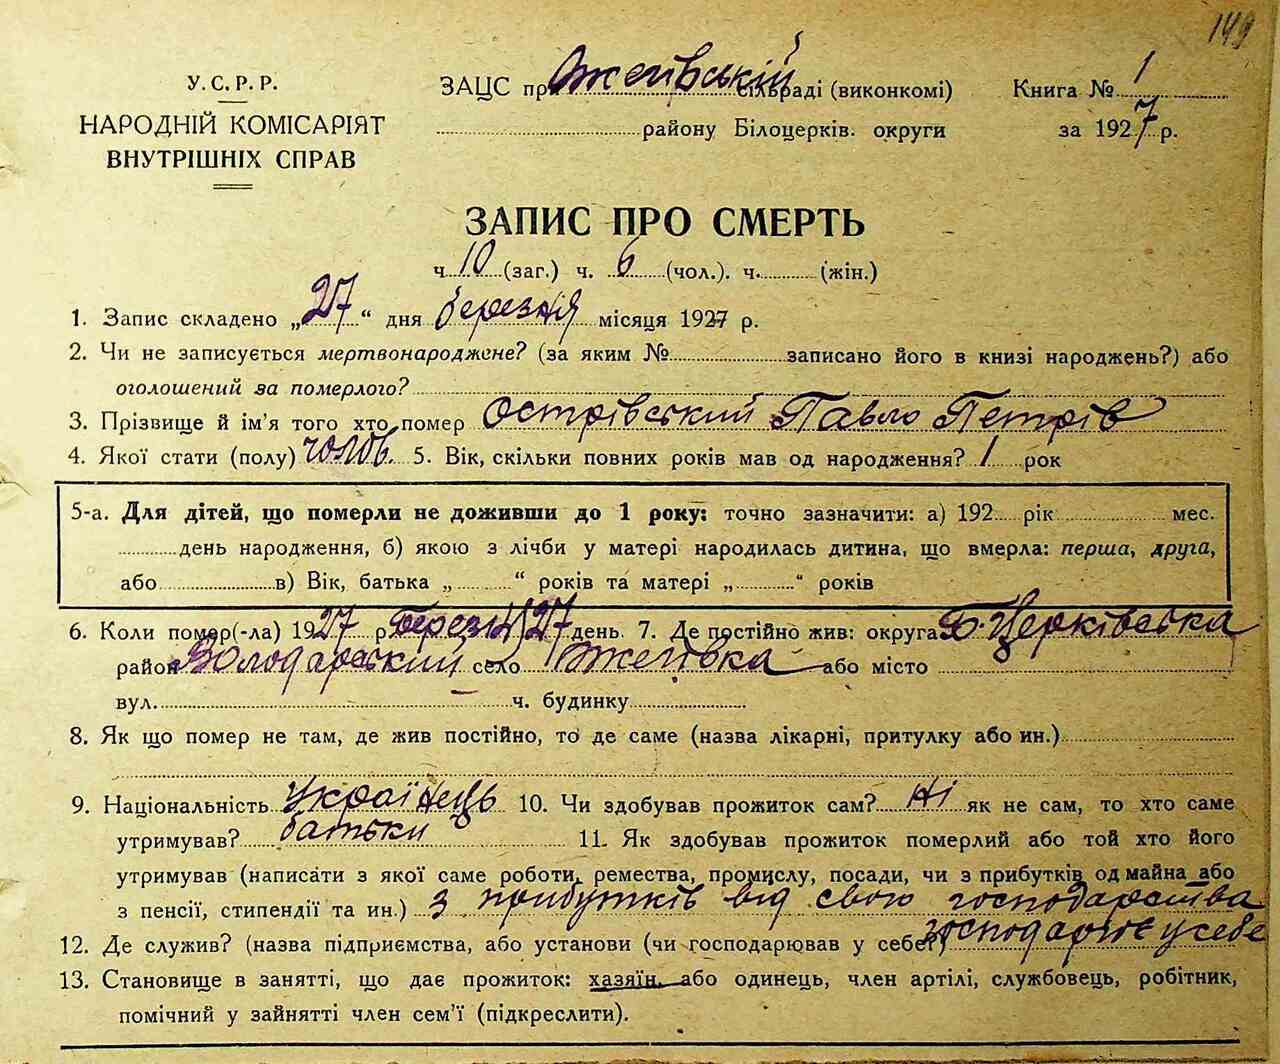 149
У.С.Р.Р.
НАРОДНІЙ КОМІСАРІЯТ
ВНУТРІШНІХ СПРАВ
ЗАЦС при Ожегівській сільраді (виконкомі)
району Білоцерків. округи
Книга № 1
за 1927 р.
ЗАПИС ПРО СМЕРТЬ
ч. 10 (заг.) ч. 6 (чол.). ч. (жін.)
1. Запис складено „27“ дня березня місяця 1927 р.
2. Чи не записується мертвонароджене? (за яким № записано його в книзі народжень?) або
оголошений за померлого?
3. Прізвище й ім'я того хто помер Острівський Павло Петрів
4. Якої стати (полу) чолов. 5. Вік, скільки повних років мав од народження? 1 рок
5-а. Для дітей, що померли не доживши до 1 року: точно зазначити: а) 192 рік мес.
день народження, б) якою з лічби у матері народилась дитина, що вмерла: перша, друга,
або в) Вік, батька „ “ років та матері „ “ років
6. Коли помер(-ла) 1927 р. березня 27 день. 7. Де постійно жив: округа Б-Церківська
район Володарський село Ожегівка або місто
вул. ч. будинку
8. Як що помер не там, де жив постійно, то де саме (назва лікарні, притулку або ин.)
9. Національність українець 10. Чи здобував прожиток сам? ні як не сам, то хто саме
утримував? батьки 11. Як здобував прожиток померлий або той хто його
утримував (написати з якої саме роботи, ремества, промислу, посади, чи з прибутків од майна або
з пенсії, стипендії та ин.) з прибутків від свою господарства
12. Де служив? (назва підприємства, або установи (чи господарював у себе?) господарює у себе
13. Становище в занятті, що дає прожиток: хазяїн, або одинець, член артілі, службовець, робітник,
помічний у зайнятті член сем'ї (підкреслити).